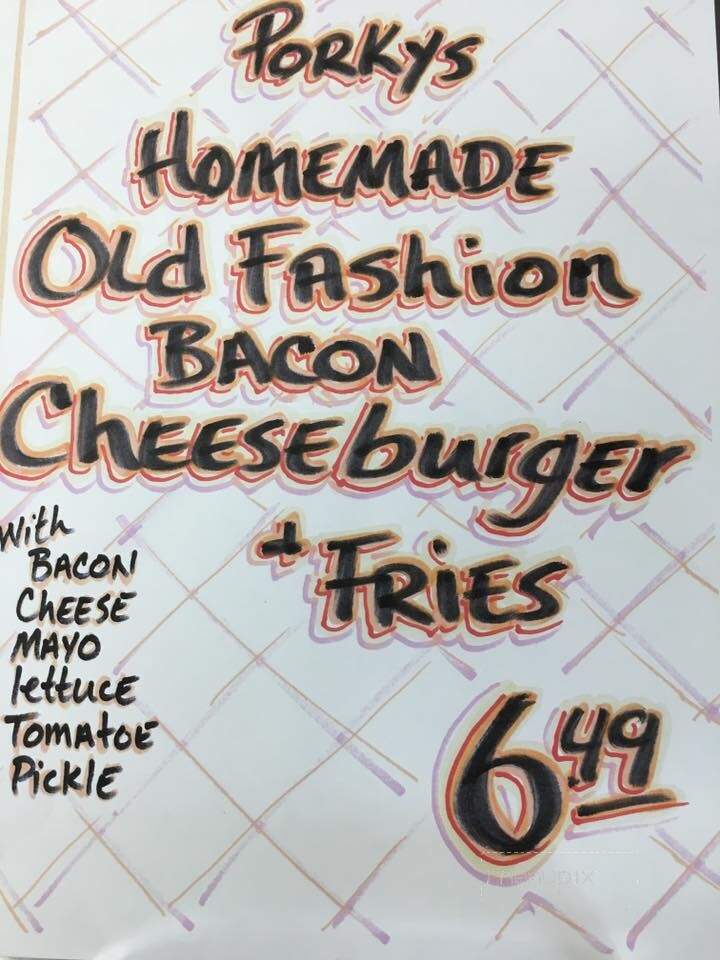 PORKYS
HOMEMADE
Old FAshion
BACON
ChEESEburgEr
+ FRiES
With
BACON
ChEESE
MAYO
lettucE
TOMAtOE
PicklE
6.49